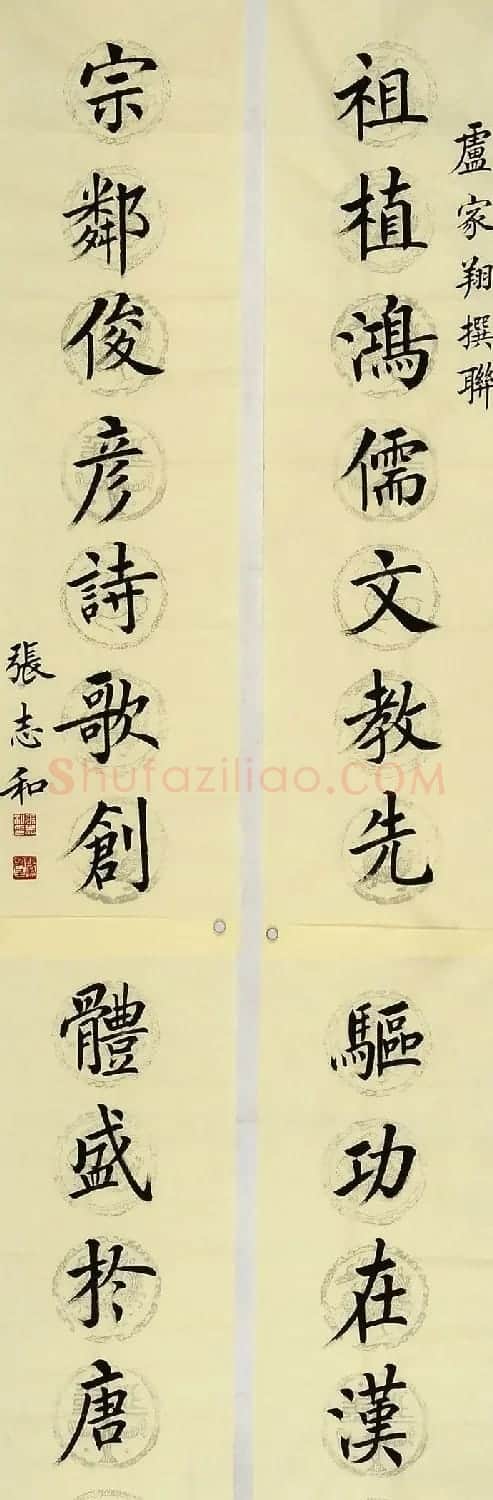 盧家翔撰聯
祖植鴻儒文教先驅功在漢
宗鄰俊彥詩歌創體盛於唐
張志和
Shufaziliao.COM